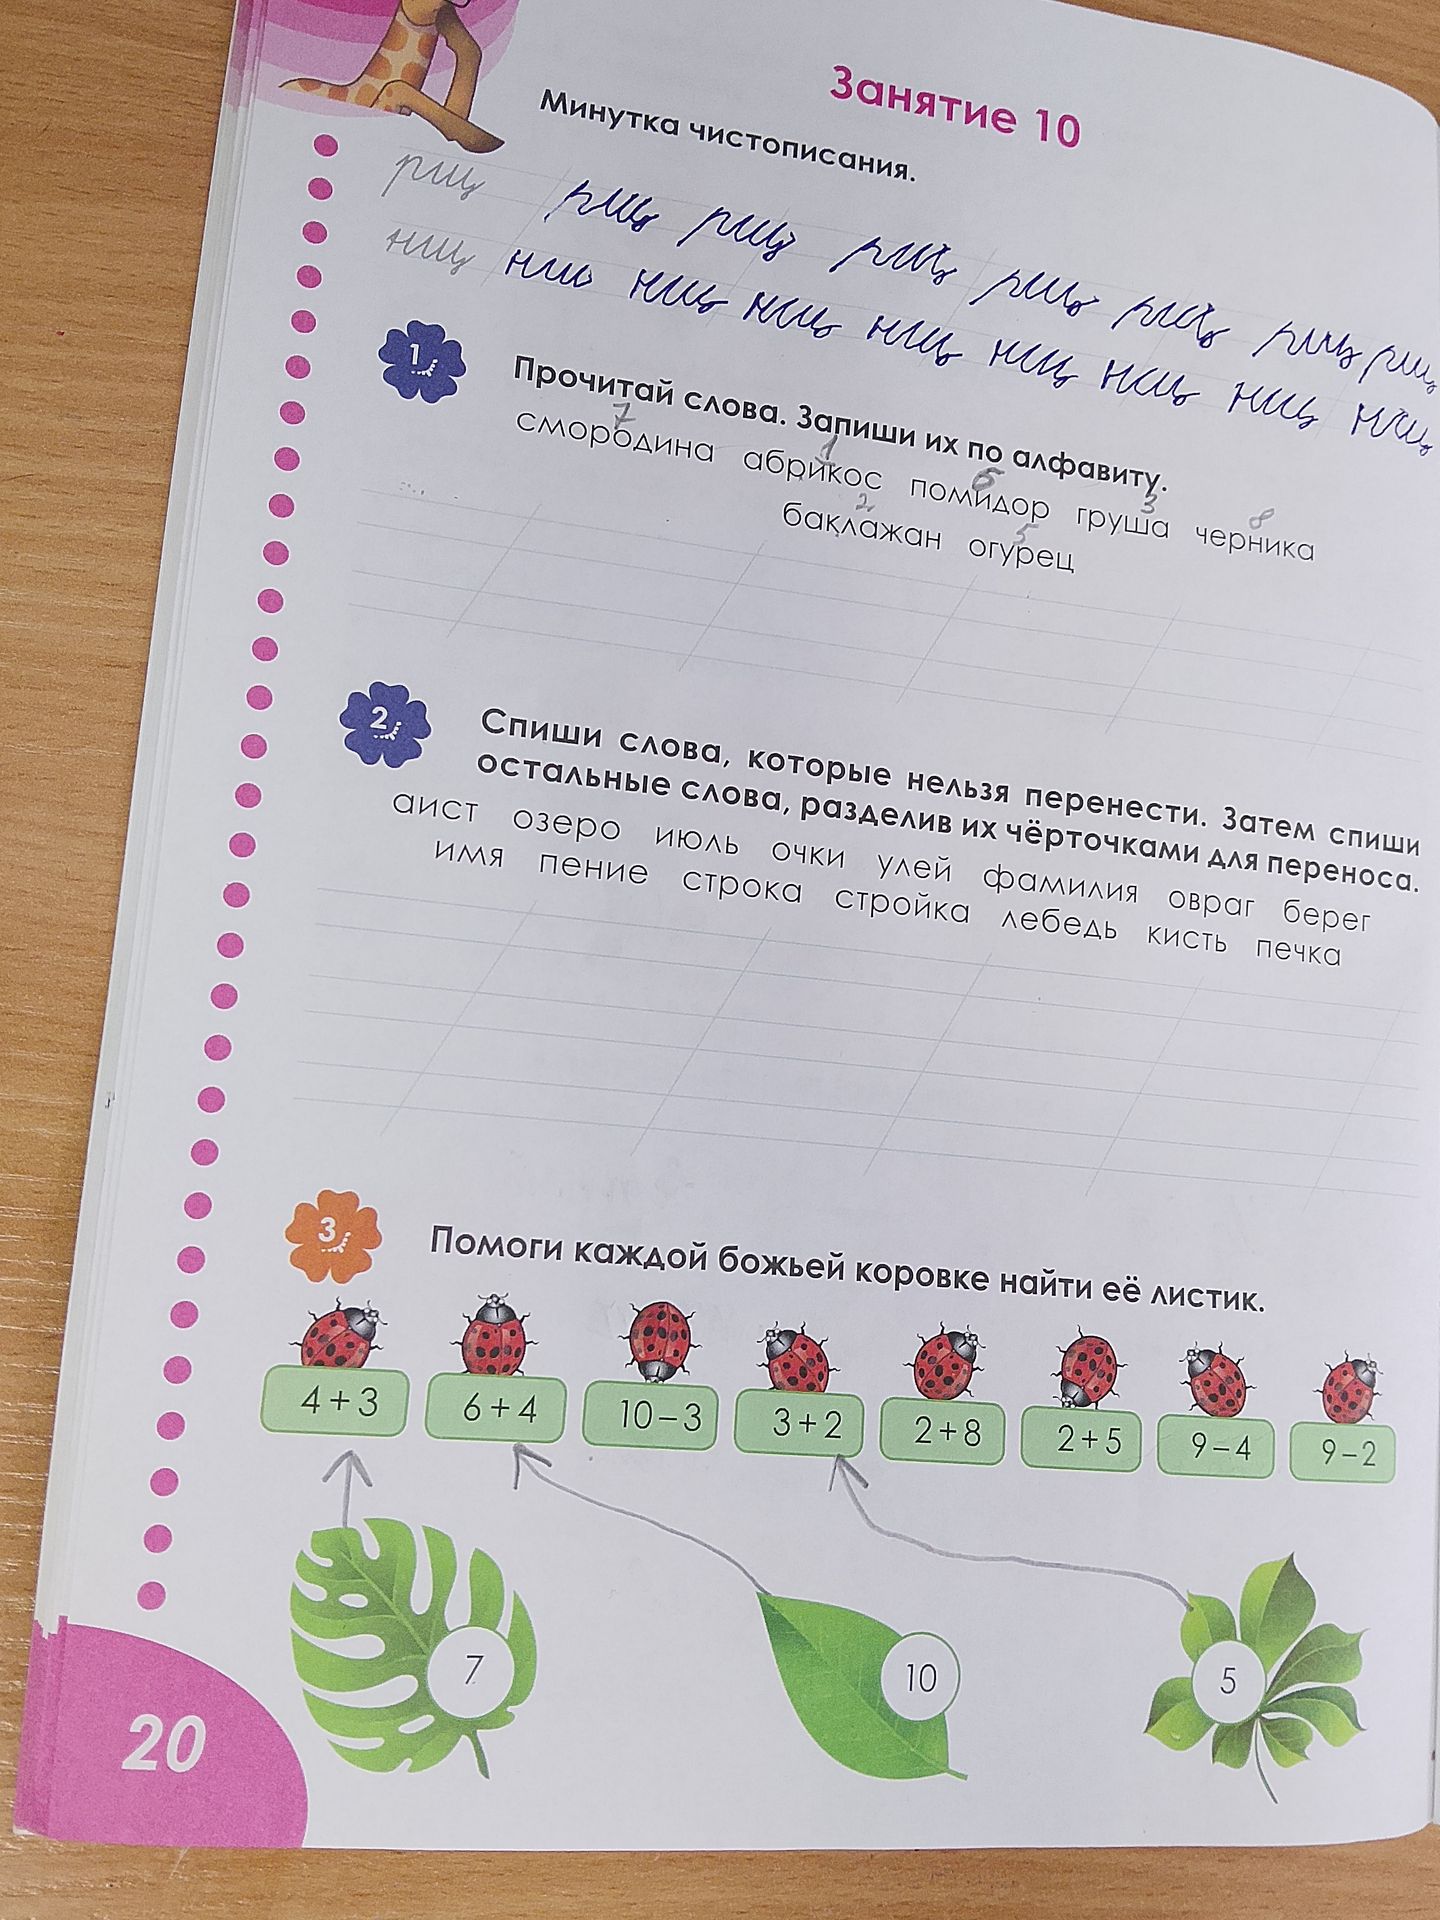 Занятие 10
Минутка чистописания.
рщ рщ рщ рщ рщ рщ рщ рщ
нщ нш нщ нщ нщ нщ нщ нщ нщ
1
Прочитай слова. Запиши их по алфавиту.
7 1 6 3 8
смородина абрикос помидор груша черника
2 5
баклажан огурец
2
Спиши слова, которые нельзя перенести. Затем спиши
остальные слова, разделив их чёрточками для переноса.
аист озеро июль очки улей фамилия овраг берег
имя пение строка стройка лебедь кисть печка
3
Помоги каждой божьей коровке найти её листик.
4+3 6+4 10–3 3+2 2+8 2+5 9–4 9–2
7 10 5
20